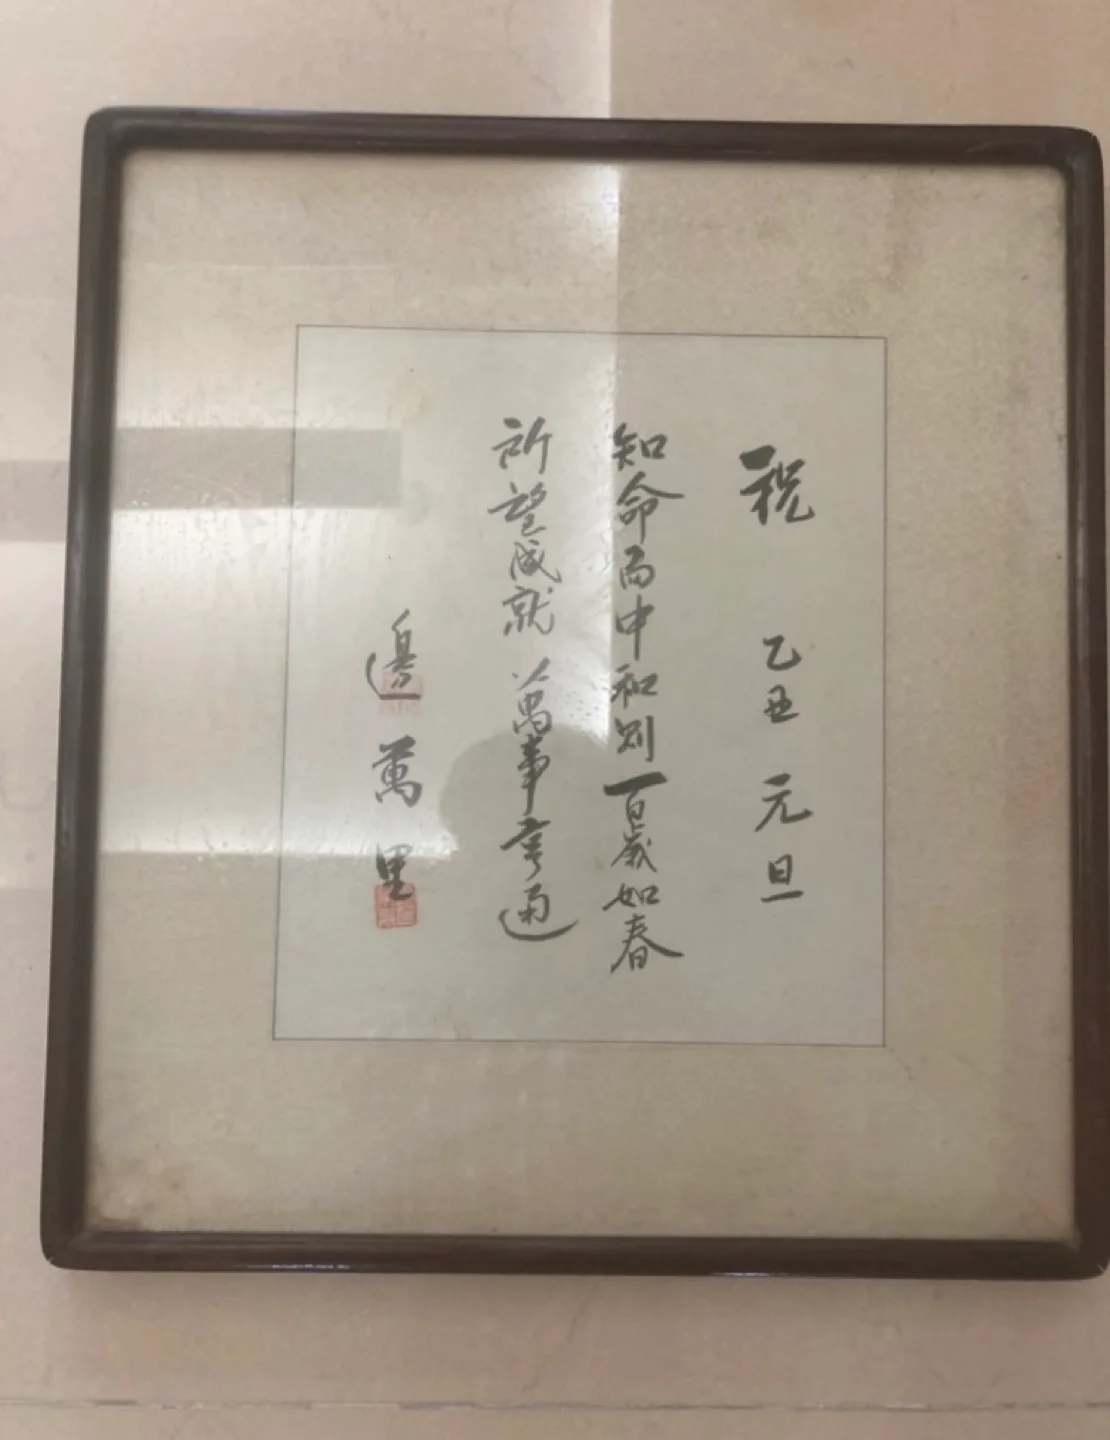 祝 乙丑 元旦
知命而中和則百歲如春
所望成就 萬事亨通
邊萬里